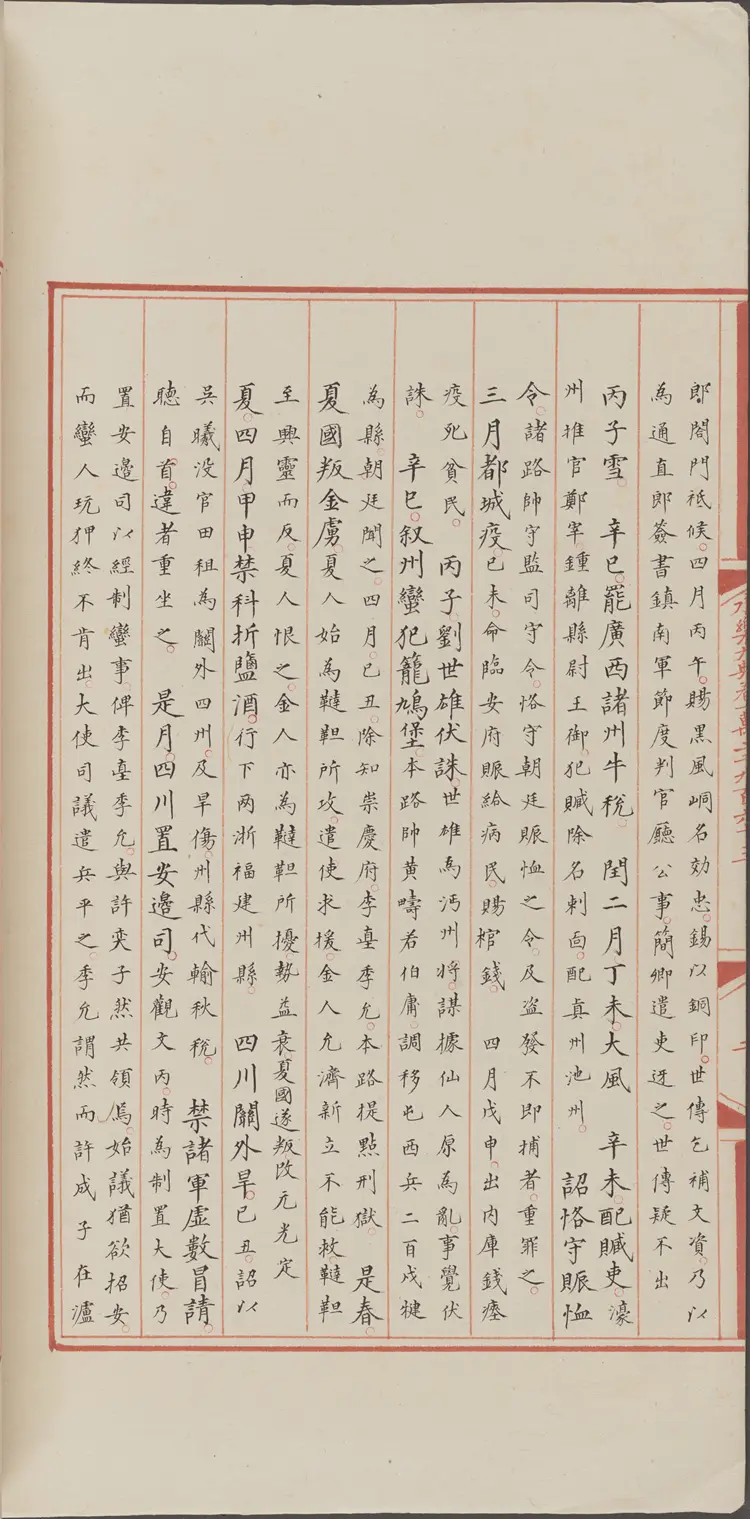 郎閤門祗候。四月丙午。賜黑風峒名効忠。錫以銅印。世傳乞補文資。乃以
為通直郎簽書鎮南軍節度判官廳公事。簡卿遣吏迓之。世傳疑不出
丙子雪。 辛巳。罷廣西諸州牛稅。 閏二月丁未。大風 辛未。配贓吏。濠
州推官鄭宰鍾離縣尉王御。犯贓除名刺面。配真州池州。 詔恪守賑恤
令。諸路帥守監司守令。恪守朝廷賑恤之令。及盜發不即捕者。重罪之。
三月都城疫。已未。命臨安府賑給病民。賜棺錢。 四月戊申。出内庫錢瘞
疫死貧民。 丙子。劉世雄伏誅。世雄為沔州將。謀據仙人原為亂。事覺伏
誅。 辛巳。叙州蠻犯籠鳩堡。本路帥黃疇若伯庸。調移屯西兵二百戍犍
為縣。朝廷聞之。四月。己丑。除知崇慶府。李𡌴季允。本路提點刑獄。 是春。
夏國叛金虜。夏人始為韃靼所攻。遣使求援。金人允濟新立不能救。韃靼
至興靈而反。夏人恨之。金人亦為韃靼所擾。勢益衰夏國遂叛改元光定
夏。四月。甲申。禁科折鹽酒。行下两浙福建州縣。 四川關外旱。已丑。詔以
吳曦没官田租為關外四州。及旱傷。州縣代輸秋稅。 禁諸軍虛數冒請。
聽自首。違者重坐之。 是月。四川置安邊司。安觀文丙。時為制置大使。乃
置安邊司以經制蠻事。俾李𡌴季允。與許奕子然共領焉。始議猶欲招安。
而蠻人玩狎終不肯出。大使司議遣兵平之。季允謂然。而許成子在瀘